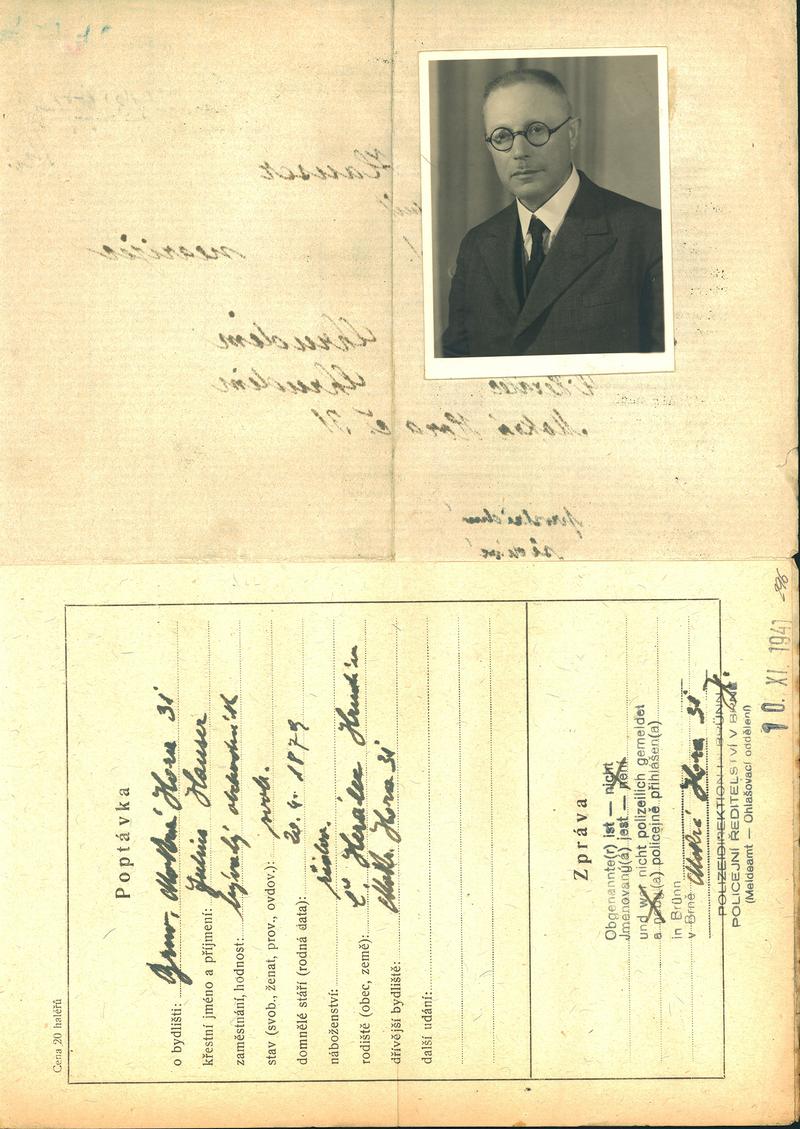 Cena 20 haléřů
Poptávka
o bydlišti: Brno, Mokrá Hora 31
křestní jméno a příjmení: Julius Hauser
zaměstnání, hodnost: bývalý obchodník
stav (svob., ženat, prov., ovdov.): svob.
domnělé stáří (rodná data): 20. 4. 1879
náboženství:
rodiště (obec, země): Herálec Chrudim
dřívější bydliště: Mokrá Hora 31
další udání:
Zpráva
Obgenannte(r) ist — nicht
Jmenovaný(á) jest — není
und war nicht polizeilich gemeldet
a nebyl(a) policejně přihlášen(a)
in Brünn
v Brně Mokrá Hora 31
POLIZEIDIREKTION I. BRÜNN
POLICEJNÍ ŘEDITELSTVÍ V BRNĚ
(Meldeamt — Ohlašovací oddělení)
10. XI. 1941
Hauser
Mokrá Hora č. 31